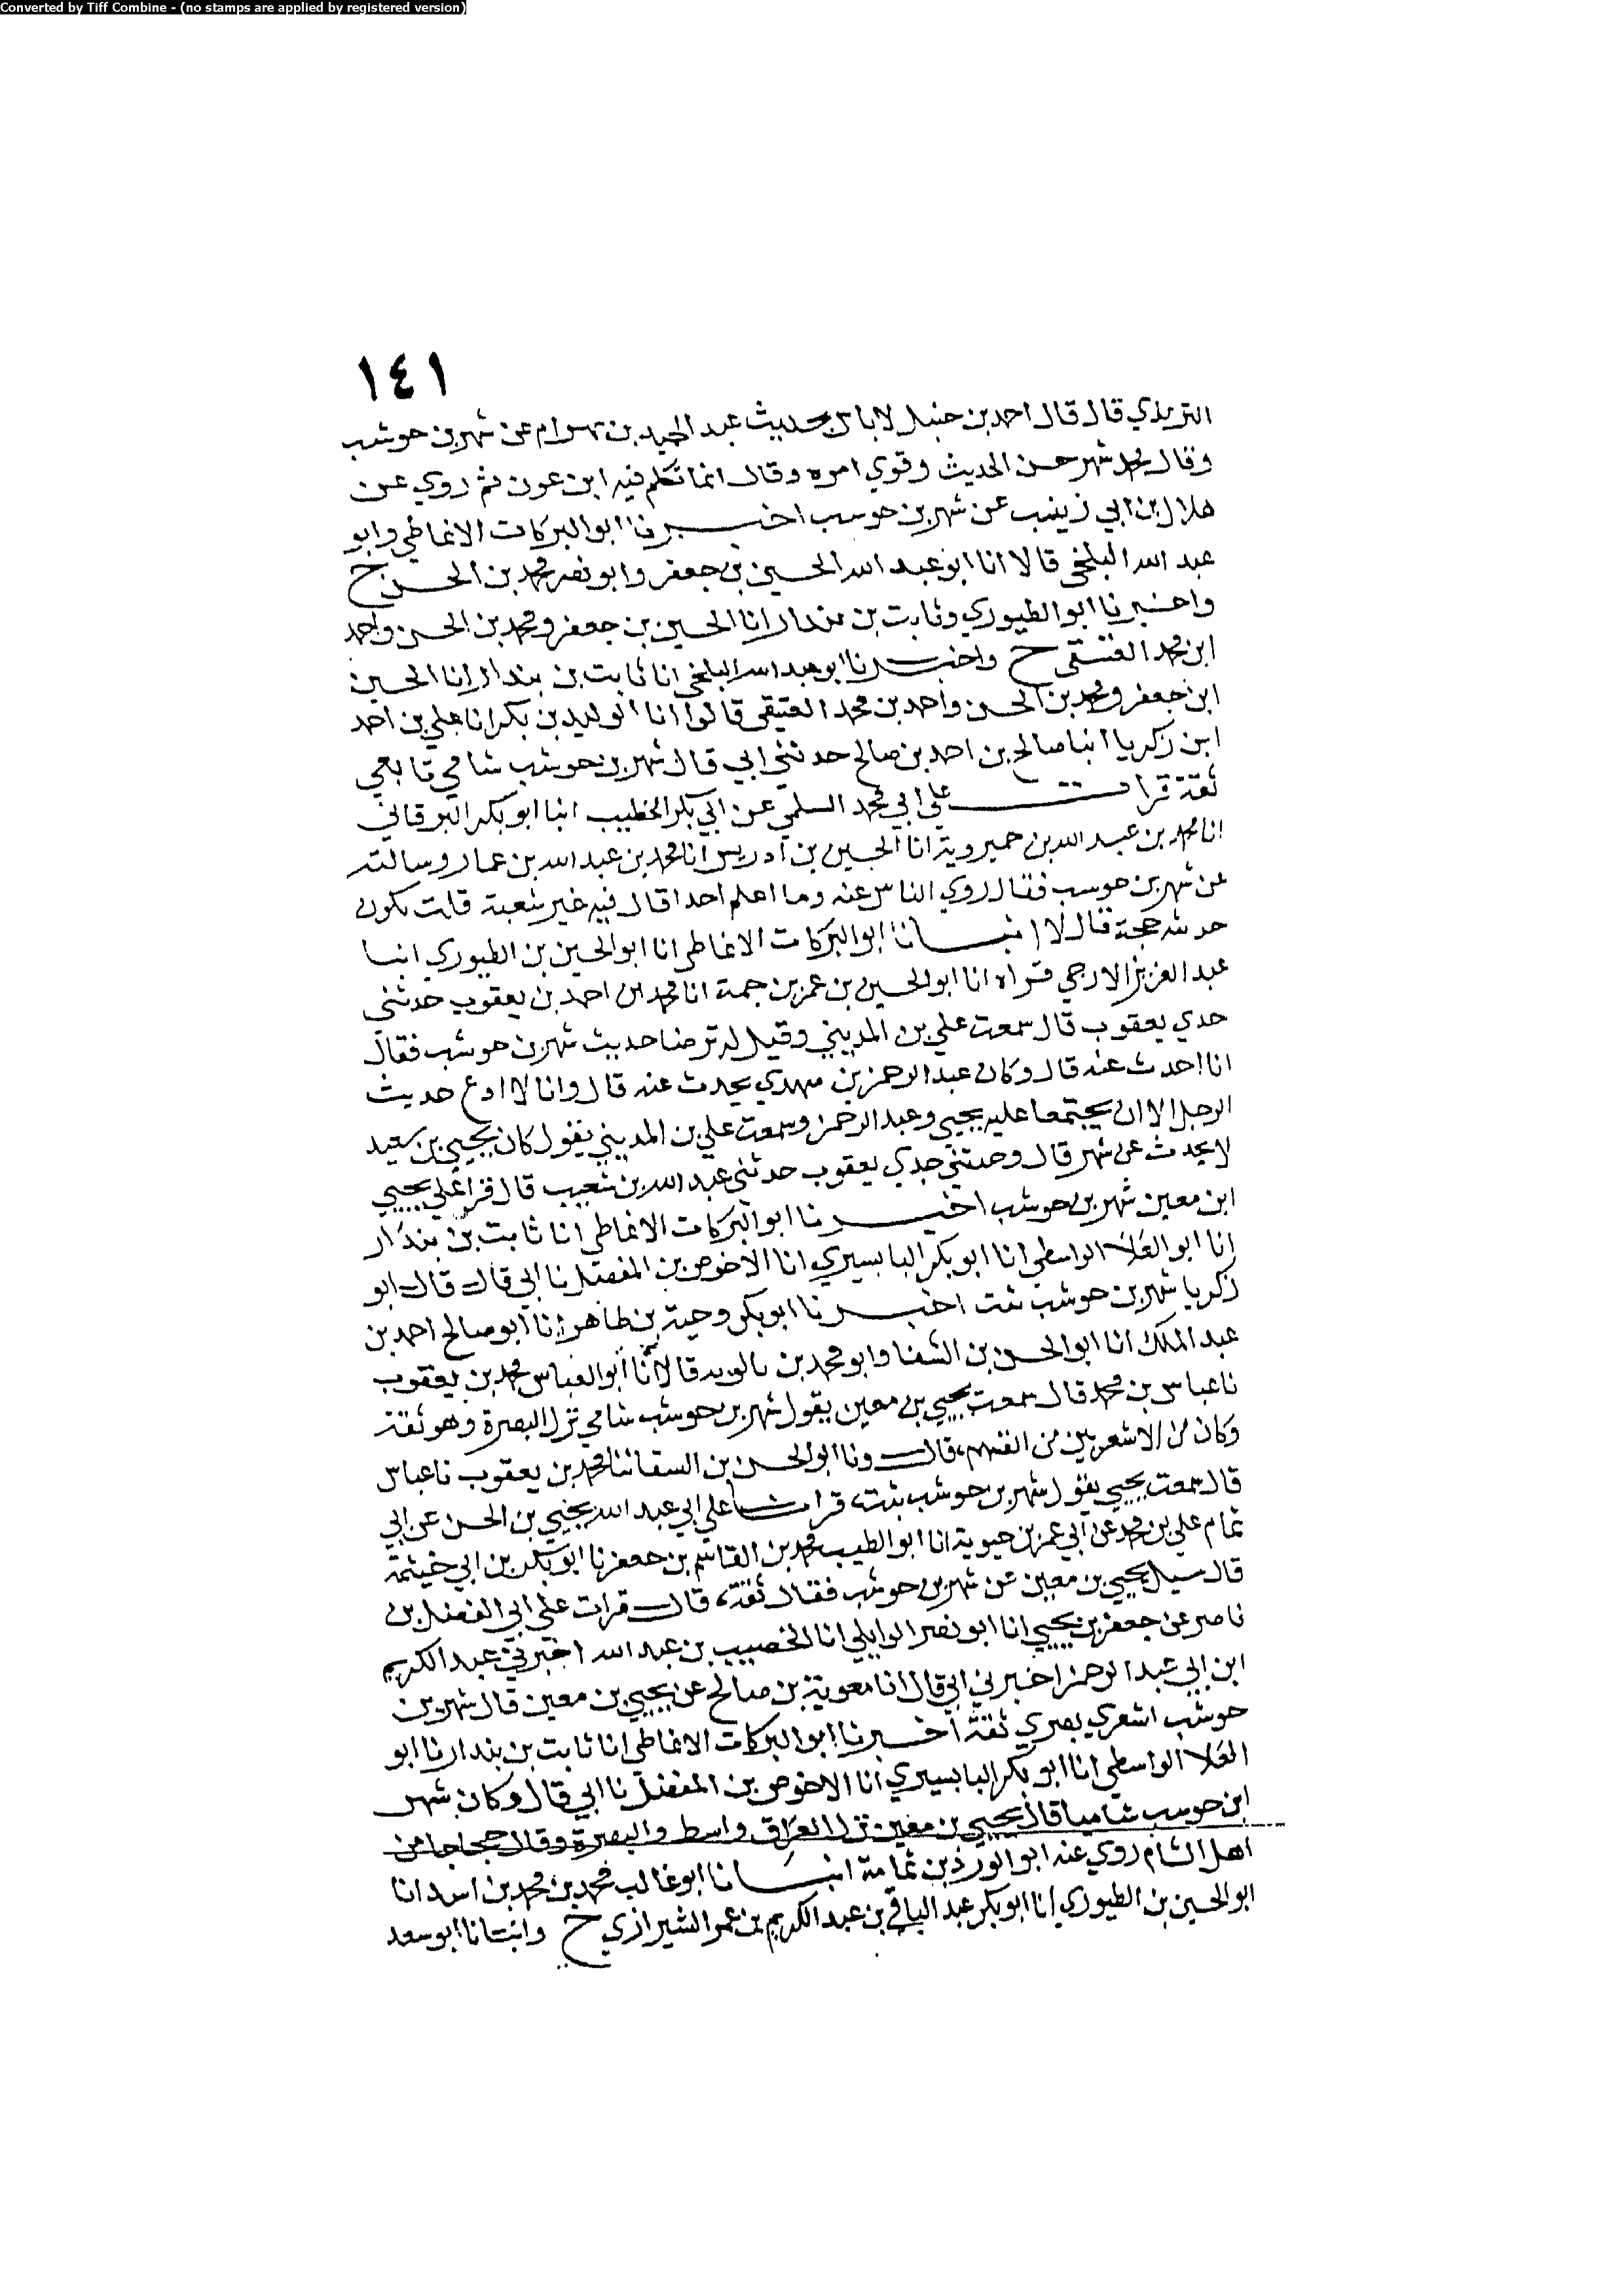 Converted by Tiff Combine - (no stamps are applied by registered version)
١٤١
الترمذي قال قال احمد بن حنبل لا باس بحديث عبد الحميد بن بهرام عن شهر بن حوشب
وقال محمد شهر حسن الحديث وقوي امره وقال انما تكلم فيه ابن عون ثم روي عن
هلال بن ابي زينب عن شهر بن حوسب اخبرنا ابو البركات الانماطي وابو
عبد الله البلخي قالا انا ابو عبد الله الحسين بن جعفر وابو نصر محمد بن الحسن ح
واخبرنا ابو الطيوري وثابت بن بندار انا الحسين بن جعفر ومحمد بن الحسن واحمد
ابن محمد العتيقي ح واخبرنا ابو عبد الله البلخي انا ثابت بن بندار انا الحسين
ابن جعفر ومحمد بن الحسن واحمد بن محمد العتيقي قالوا انا الوليد بن بكر انا علي بن احمد
ابن زكريا انبا صالح بن احمد بن صالح حدثني ابي قال شهر بن حوشب شامي تابعي
ثقة قرات علي ابي محمد السلمي عن ابي بكر الخطيب انبا ابو بكر البرقاني
انا محمد بن عبد الله بن خميرويه انا الحسين بن ادريس انا محمد بن عبد الله بن عمار وسالته
عن شهر بن حوسب فقال روي الناس عنه وما اعلم احدا قال فيه غير شعبة قلت يكون
حديثه حجة قال لا انبانا ابو البركات الانماطي انا ابو الحسين بن الطيوري انبا
عبد العزيز الازجي قراه انا ابو الحسين بن عمر بن حمة انا محمد بن احمد بن يعقوب حدثني
جدي يعقوب قال سمعت علي بن المديني وقيل له ترضا حديث شهر بن حوشب فقال
انا احدث عنه قال وكان عبد الرحمن بن مهدي يحدث عنه قال وانا لا ادع حديث
الرجل الا ان يجتمعا عليه يحيي وعبد الرحمن وسمعت علي بن المديني يقول كان يحيي بن سعيد
لا يحدث عن شهر قال وحدثني جدي يعقوب حدثني عبد الله بن شعيب قال قرا علي يحيي
ابن معين شهر بن حوشب اخبرنا ابو البركات الانماطي انا ثابت بن بندار
انا ابو العلا الواسطي انا ابو بكر البابسيري انا الاخوص بن المفضل نا ابي قال قال ابو
زكريا شهر بن حوشب ثبت اخبرنا ابو بكر وجيه بن طاهر انا ابو صالح احمد بن
عبد الملك انا ابو الحسن بن السقا وابو محمد بن بالويه قالا انا ابو العباس محمد بن يعقوب
نا عباس بن محمد قال سمعت يحيي بن معين يقول شهر بن حوشب شامي نزل البصرة وهو ثقة
وكان من الاشعريين من انفسهم قال ونا ابو الحسن بن السقا نا محمد بن يعقوب نا عباس
قال سمعت يحيي يقول شهر بن حوشب ثبت قرات علي ابي عبد الله يحيي بن الحسن عن ابي
تمام علي بن محمد عن ابي عمر بن حيوية انا ابو الطيب محمد بن القاسم بن جعفر نا ابو بكر بن ابي خيثمة
قال سيل يحيي بن معين عن شهر بن حوشب فقال ثقة قال قرات علي ابي الفضل بن
ناصر عن جعفر بن يحيي انا ابو نصر الوايلي انا الخصيب بن عبد الله اخبرني عبد الكريم
ابن ابي عبد الرحمن اخبرني ابي قال انا معوية بن صالح عن يحيي بن معين قال شهر بن
حوشب اشعري بصري ثقة اخبرنا ابو البركات الانماطي انا ثابت بن بندار نا ابو
العلا الواسطي انا ابو بكر البابسيري انا الاخوص بن المفضل نا ابي قال وكان شهر
ابن حوسب شاميا قال يحيي بن معين نزل العراق واسط والبصرة وقال حجاجا من
اهل الشام روي عنه ابو الورد بن ثمامة انبانا ابو غالب محمد بن محمد بن اسد انا
ابو الحسين بن الطيوري انا ابو بكر عبد الباقي بن عبد الكريم بن عمر الشيرازي ح وانبتانا ابو سعد